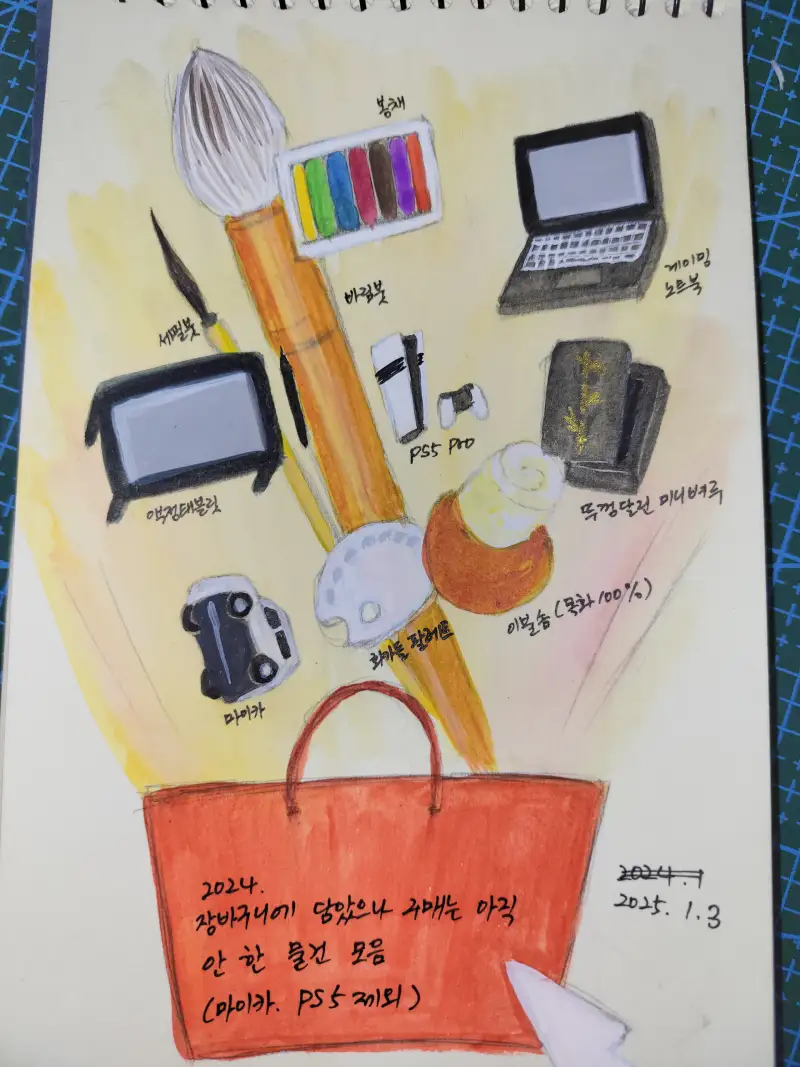 봉채
게이밍
노트북
바림붓
세필붓
PS5 Pro
액정태블릿
뚜껑달린 미니벼루
이불솜 (목화 100%)
화가들 팔레트
마이카
2024.
장바구니에 담았으나 구매는 아직
안 한 물건 모음
(마이카. PS5 제외)
2024. 1
2025. 1. 3